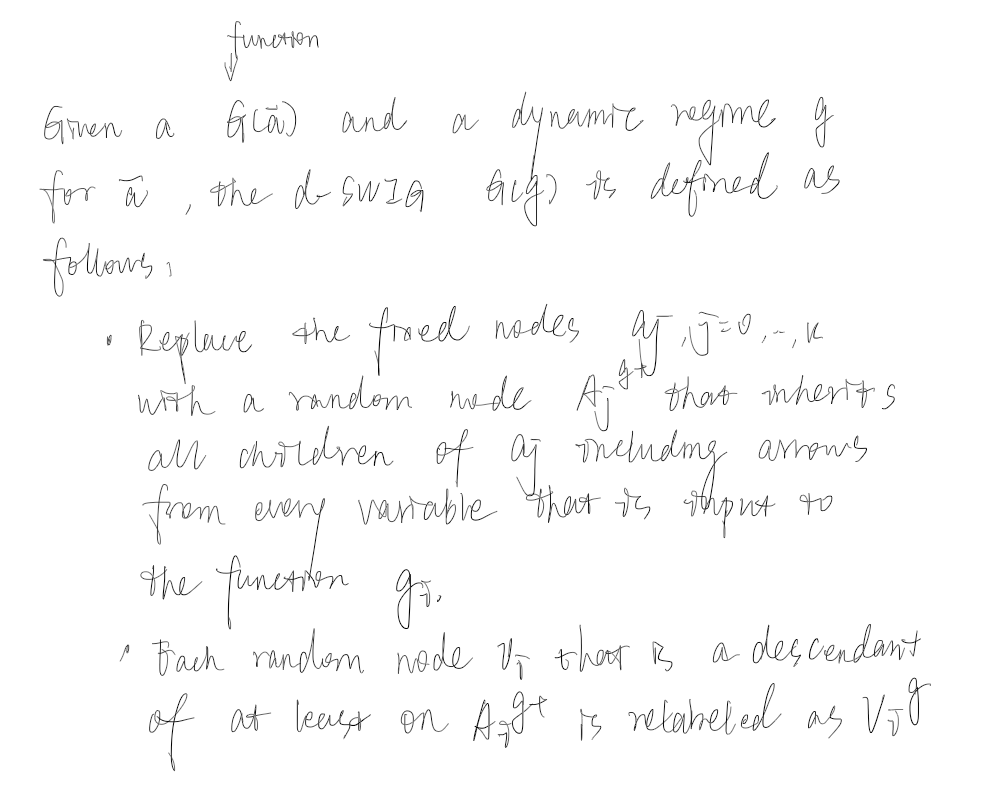 function
Given a G(ā) and a dynamic regime g
for ā, the d-SWIG G(g) is defined as
follows,
• Replace the fixed nodes aj, j=0,..,k
with a random node Aj^g+ that inherits
all children of aj including arrows
from every variable that is input to
the function gj.
• Each random node Vj that is a descendant
of at least on Aj^g+ is relabeled as Vj^g